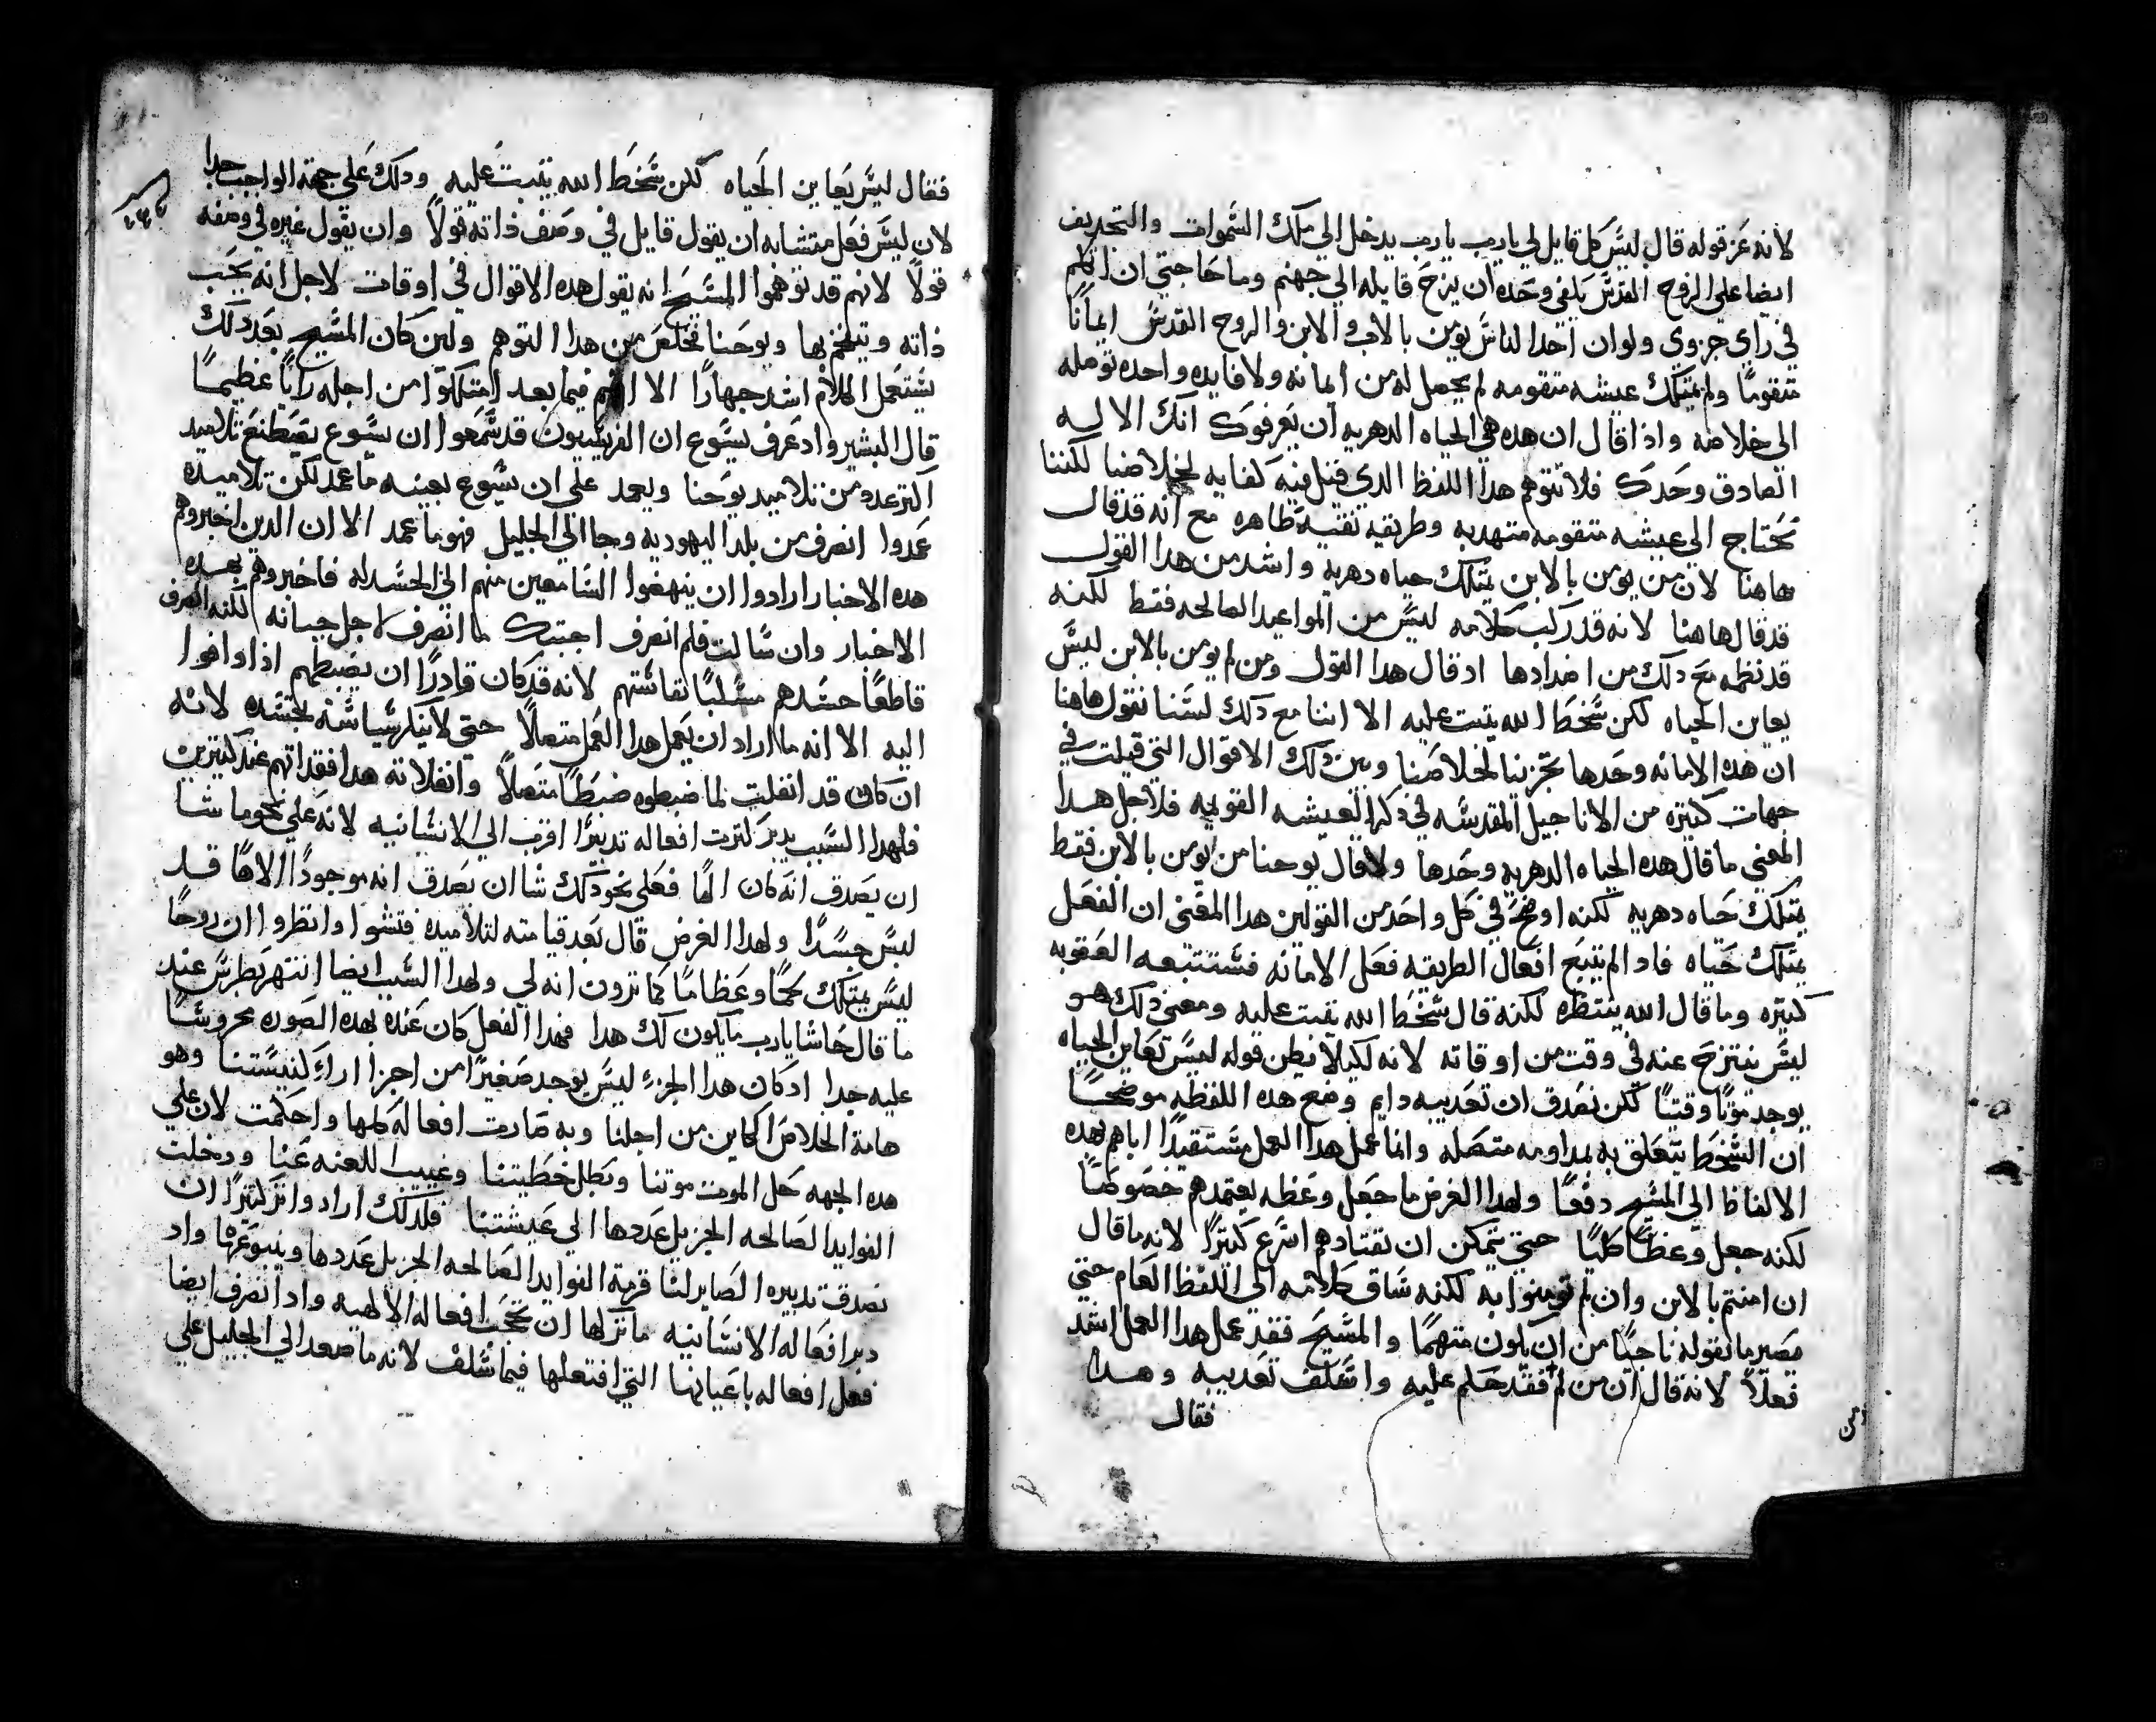 لانه عز قوله قال ليس كل قايل لي يارب يارب يدخل الي ملك السموات والتجديف
ايضا علي الروح القدس يلفي وحده ان يزج قايله الي جهنم وما حاجتي ان اتكلم
في راي جزوي ولو ان احد الناس يومن بالاب والابن والروح القدس ايمانا
متقوما ولم يمتلك عيشه متقومه لم يحصل له من ايمانه ولا فايده واحده توصله
الي خلاصه واذا قال ان هده هي الحياه الدهريه ان يعرفوك انك الاله
الصادق وحدك فلا نتوهم هدا اللفظ الدي قيل فيه كفايه لخلاصنا لكننا
نحتاج الي عيشه متقومه متهدبه وطريقه نقيه ظاهره مع انه قد قال
هاهنا لان من يومن بالابن يمتلك حياه دهريه واشد من هدا القول
قد قال هاهنا لانه قد ركب كلامه ليس من المواعيد الصالحه فقط لكنه
قد نظمه مع دلك من اضدادها اد قال هدا القول ومن لم يومن بالابن ليس
يعاين الحياه لكن سخط الله يتبت عليه الا اننا مع دلك لسنا نقول هاهنا
ان هده الامانه وحدها تجزينا لخلاصنا وبين دلك الاقوال التي قيلت في
جهات كتيره من الاناجيل المقدسه في دكر العيشه القويمه فلاجل هدا
المعني ما قال هده الحياه الدهريه وحدها ولا قال يوحنا من يومن بالابن فقط
يمتلك حياه دهريه لكنه اوضح في كل واحد من القولين هدا المعني ان الفعل
يمتلك حياه فاد الم يتبع افعال الطريقه فعل الامانه فستتبعه العقوبه
كتيره وما قال الله ينتظره لكنه قال سخط الله يتبت عليه ومعني دلك هو
ليس ينتزح عنه في وقت من اوقاته لانه لكيلا نظن قوله ليس يعاين الحياه
يوجد موتا وقتيا لكن نصدق ان تعديبه دايم وضع هده اللفظه موضحا
ان السخط يتعلق به بمداومه متصله وانما عمل هدا العمل مستقيدا اياهم بهده
الالفاظ الي المسيح دفعا ولهدا الغرض ما جعل وعظه يعتمدهم خصوصا
لكنه جعل وعظا كليا حتي يتمكن ان يقتادهم اسرع كتيرا لانه ما قال
ان امنتم بالابن وان لم تومنوا به لكنه ساق كلامه الي اللفظ العام حتي
يصير ما يقوله ناجيا من ان يكون متهما والمسيح فقد عمل هدا العمل اشد
فعلا لانه قال ان من لم فقد حكم عليه واسلف تعديبه وهدا
فقال
فقال ليس يعاين الحياه لكن سخط الله يتبت عليه ودلك علي جهة الواجب جدا
لان ليس فعل متشابه ان يقول قايل في وصف ذاته قولا وان يقول غيره في وصفه
قولا لانهم قد توهموا المسيح انه يقول هده الاقوال في اوقات لاجل انه يحب
ذاته ويتفخم بها ويوحنا تخلص من هدا التوهم ولين كان المسيح بعد دلك
يستعمل الكلام اشد جهارا الا انهم فيما بعد امتلكوا من اجله رايا عظيما
قال البشير واد عرف يسوع ان الفريسيون قد سمعوا ان يسوع يصطنع تلاميد
اكتر عدد من تلاميد يوحنا ويعمد علي ان يسوع بعينه ما عمد لكن تلاميده
عمدوا انصرف من بلد اليهوديه وجا الي الجليل فهو ما عمد الا ان الدين اخبروهم
هده الاخبار ارادوا ان ينهضوا السامعين منهم الي الحسد له فاخبروهم بهده
الاخبار وان سالت فلم انصرف اجبتك ما انصرف لاجل جبانه لكنه انصرف
قاطعا حسدهم مسكنا تقاستهم لانه قد كان قادرا ان يضبطهم اذا وافوا
اليه الا انه ما اراد ان يعمل هدا العمل متصلا حتي لا ينكر سياسته بجسده لانه
ان كان قد انفلت لما ضبطوه ضبطا متصلا وانفلاته هدا فقد اتهم عند كتيرين
فلهدا السبب يدبر كترت افعاله تدبيرا اقرب الي الانسانيه لانه علي نحو ما شا
ان يصدق انه كان الها فعلي نحو دلك شا ان يصدق انه موجودا الاها قد
لبس جسدا ولهدا الغرض قال بعد قيامته لتلاميده فتشوا وانظروا ان روحا
ليس يمتلك لحما وعظاما كما ترون انه لي ولهدا السبب ايضا انتهر بطرس عند
ما قال حاشا يارب ما يكون لك هدا فهدا الفعل كان عنده بهده الصوره محروسا
عليه جدا اد كان هدا الجزء ليس يوجد صغيرا من اجزا اراء كنيستنا وهو
هامة الخلاص الكاين من اجلنا وبه صارت افعاله كلها واحكمت لان علي
هده الجهه حل الموت موتنا وبطل خطيتنا وغيبت اللعنه عنا ودخلت
الفوايد الصالحه الجزيل عددها الي عيشتنا فلدلك اراد وانر كتيرا ان
نصدق تدبيره الصاير لنا قرمة الفوايد الصالحه الجزيل عددها وينبوعها واد
دبر افعاله الانسانيه ما تركها ان تحجب افعاله الالهيه واد انصرف ايضا
فعل افعاله باعيانها التي افتعلها فيما سلف لانه ما صعد الي الجليل علي